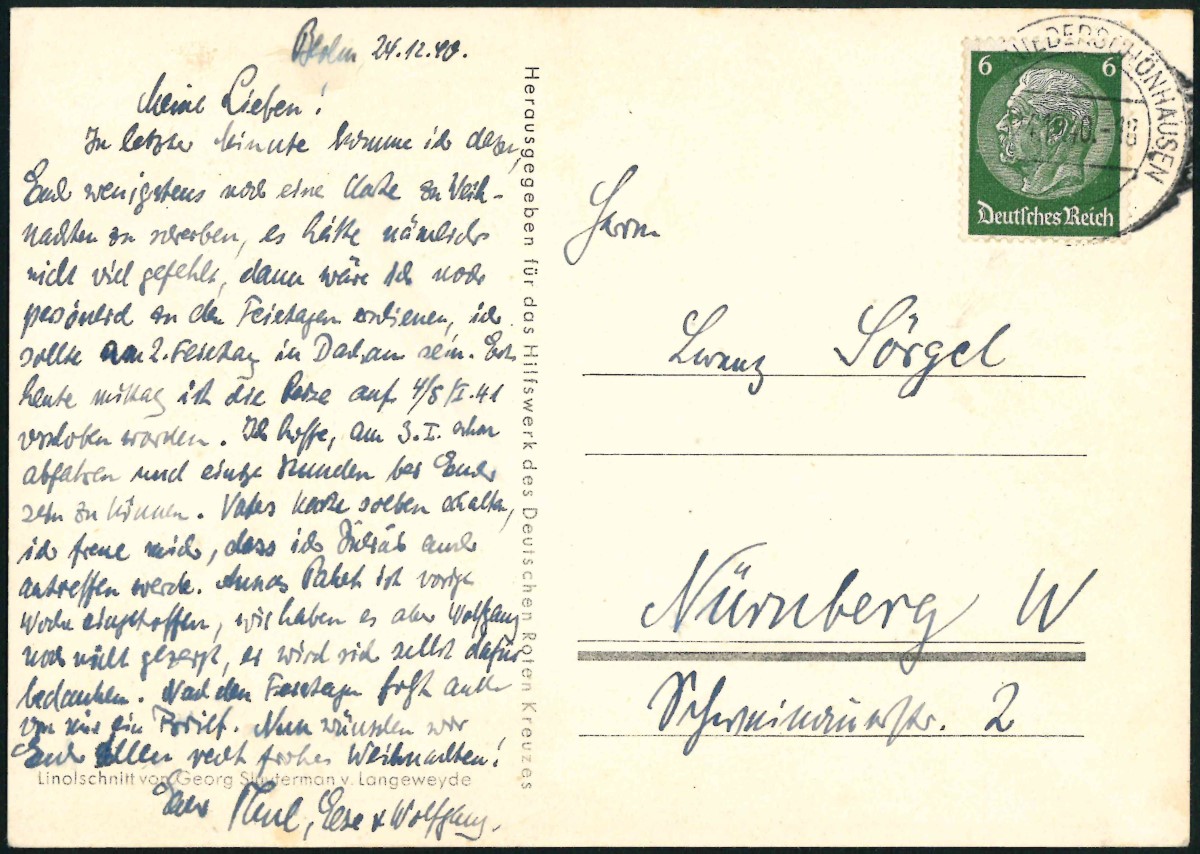 Berlin, 24.12.40.
Meine Lieben!
In letzter Minute komme ich dazu,
Euch wenigstens noch eine Karte zu Weih-
nachten zu schreiben, es hätte nämlich
nicht viel gefehlt, dann wäre ich noch
persönlich zu den Feiertagen erschienen, ich
sollte am 2. Feiertag in Dachau sein. Erst
heute mittag ist die Reise auf 4/5/I.41
verschoben worden. Ich hoffe, am 3.I. schon
abfahren und einige Stunden bei Euch
sein zu können. Vaters Karte soeben erhalten,
ich freue mich, dass ich auch
antreffen werde. Annas Paket ist vorige
Woche eingetroffen, wir haben es aber Wolfgang
noch nicht gezeigt, er wird sich selbst dafür
bedanken. Nach den Feiertagen folgt auch
von mir ein Brief. Nun wünschen wir
Euch allen recht frohes Weihnachten!
Euer Else & Wolfgang.
Linolschnitt von Georg Sluyterman v. Langeweyde
Herausgegeben für das Hilfswerk des Deutschen Roten Kreuzes
NIEDERSCHÖNHAUSEN
6 6
Deutsches Reich
Herrn
Lorenz Sörgel
Nürnberg W
Schweinauerstr. 2